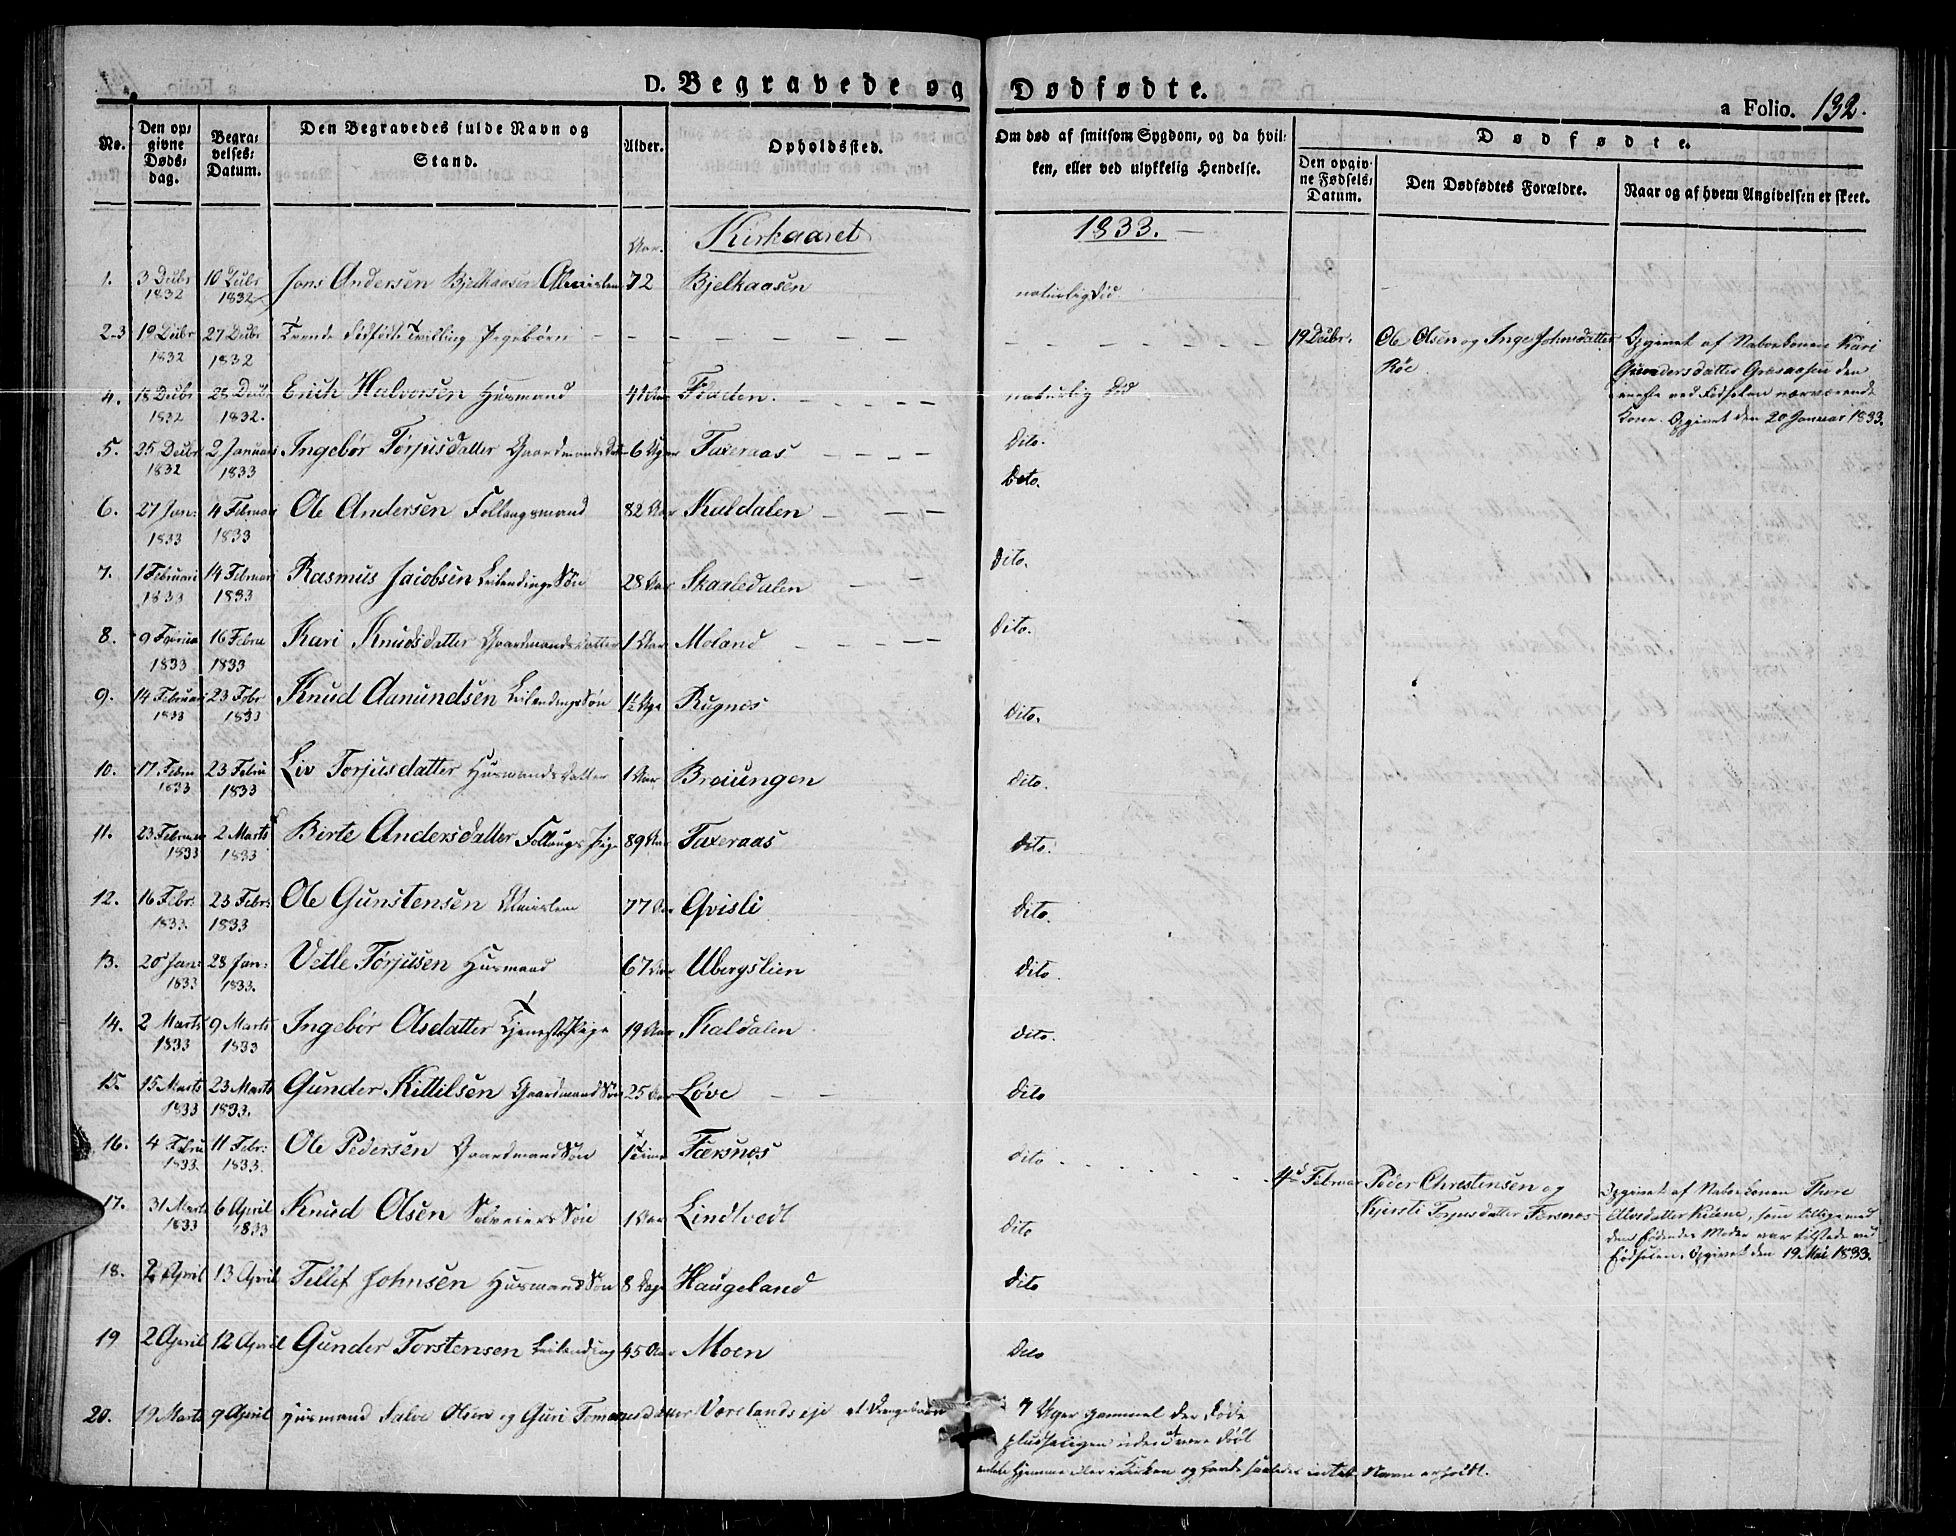 D. Begravede og Dødfødte.
a Folio. 132.
No.
Den opgivne Dødsdag.
Begravelses-Datum.
Den Begravedes fulde Navn og Stand.
Alder.
Opholdssted.
Om død af smitsom Sygdom, og da hvilken, eller ved ulykkelig Hendelse.
Dødfødte.
Den opgivne Fødsels-Datum.
Den Dødfødtes Forældre.
Naar og af hvem Angivelsen er skeet.
Aar. Kirkaaret 1833.
1. 3 Decbr 1832 10 Decbr 1832 Jens Andersen Bjelkaasen Almislem 72 Bjelkaasen naturlig Død
2-3 19 Decbr 1832 27 Decbr 1832 Tvende dødfødte Tvilling Pigebørn 19 Decbr. Ole Olsen og Inge Johnsdatter Røe Opgivet af Naboekonen Kari Gundersdatter Graaasen den eneste ved Fødselen nærværende Kone. Opgivet den 20 Januar 1833.
4. 18 Decbr 1832 28 Decbr 1832. Erich Halvorsen Husmand 41 Aar Fladen. naturlig Død
5. 25 Decbr 1832 2 Januar 1833 Ingebør Torjusdatter Gaardmands Datter 6 Uger Taxeraas Dito.
6. 27 Jan: 1833 4 Februar 1833 Ole Andersen Follaugsmand 82 Aar Kaldalen Dito.
7. 1 Februari 1833 14 Februari 1833 Rasmus Jacobsen Leilendings Søn 28 Aar Skaaledalen Dito.
8. 9 Februa 1833 16 Febru 1833 Kari Knudsdatter Gaardmandsdatter 1 Aar Moland Dito.
9. 14 Februari 1833 23 Febr 1833 Knud Aanundsen Leilendings Søn 1½ Uge Rugnes Dito.
10. 17 Febru 1833 23 Febru 1833 Liv Torjusdatter Husmandsdatter 1 Aar Breiungen Dito.
11. 23 Februar 1833 2 Marts 1833 Birte Andersdatter Follaugs Pige 89 Aar Taxeraas Dito.
12. 16 Febr: 1833. 23 Febr: 1833 Ole Gunstensen Almislem 77 Aar Qvisli Dito.
13. 20 Jan: 1833 28 Jan: 1833. Vetle Torjusen Husmand 67 Aar Ubergslien Dito.
14. 2 Marts 1833 9 Marts 1833 Ingebør Olsdatter Tjenestepige 19 Aar Kaldalen Dito.
15. 15 Marts 1833 23 Marts 1833. Gunder Kittilsen Gaardmand Søn 25 Aar Løve Dito
16. 4 Febru 1833. 11 Febr: 1833. Ole Pedersen Gaardmand Søn 1 Time Færsnes Dito 4de Februar Peder Christensen og Kjersti Torjusdatter Færsnes Opgivet af Naboekonen Thore Alvsdatter Kiline, som tillige med den Fødendes Moder var tilstede ved Fødselen. Opgivet den 19 Mai 1833.
17. 31 Marts 1833 6 April 1833 Knud Olsen Selveiers Søn 1 Aar Lindtvedt Dito
18. 2 April 13 April Tellef Johnsen Husmand Søn 8 Dage Haugeland Dito
19 2 April 12 April Gunder Torstensen Leilending 45 Aar Moen Dito
20. 19 Marts 9 April Husmand Salve Olsen og Guri Tomasdatter Vorelands eje et Drengebarn 7 Uger gammel der døde pludseligen uden at være døbt enten hjemme eller i Kirken og havde saaledes intet Navn erholdt.